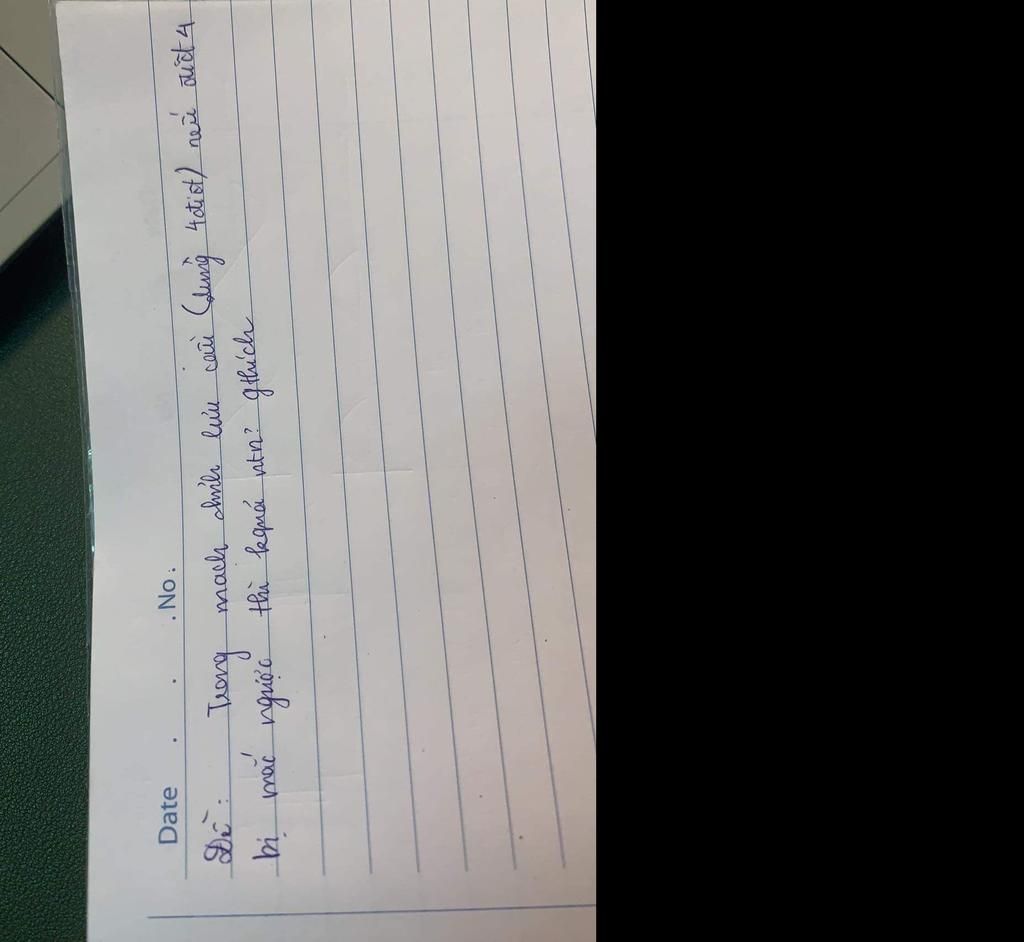 Date . . . No:
Đề: Trong mạch chỉnh lưu cầu (dùng 4điôt) nếu điôt 4
bị mắc ngược thì kquả ntn? gthích